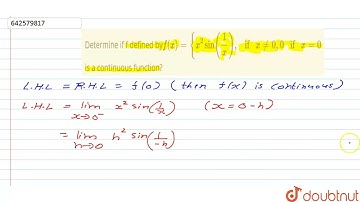 642579817
Determine if f defined by f(x) = { x² sin(1/x), if x ≠ 0, 0 if x = 0
is a continuous function?
L.H.L = R.H.L = f(0) (then f(x) is continuous)
L.H.L = lim x→0⁻ x² sin(1/x) (x = 0 - h)
= lim h→0 h² sin(1/-h)
doubtnut